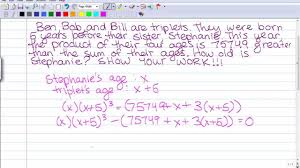 Ben Bob and Bill are triplets. They were born
5 years before their sister Stephanie. This year
the product of their four ages is 75749 greater
than the sum of their ages. How old is
Stephanie? SHOW YOUR WORK!!!
Stephanie's age: x
triplet's age: x+5
(x)(x+5)³ = (75749+x+3(x+5))
(x)(x+5)³ - (75749 + x + 3(x+5)) = 0